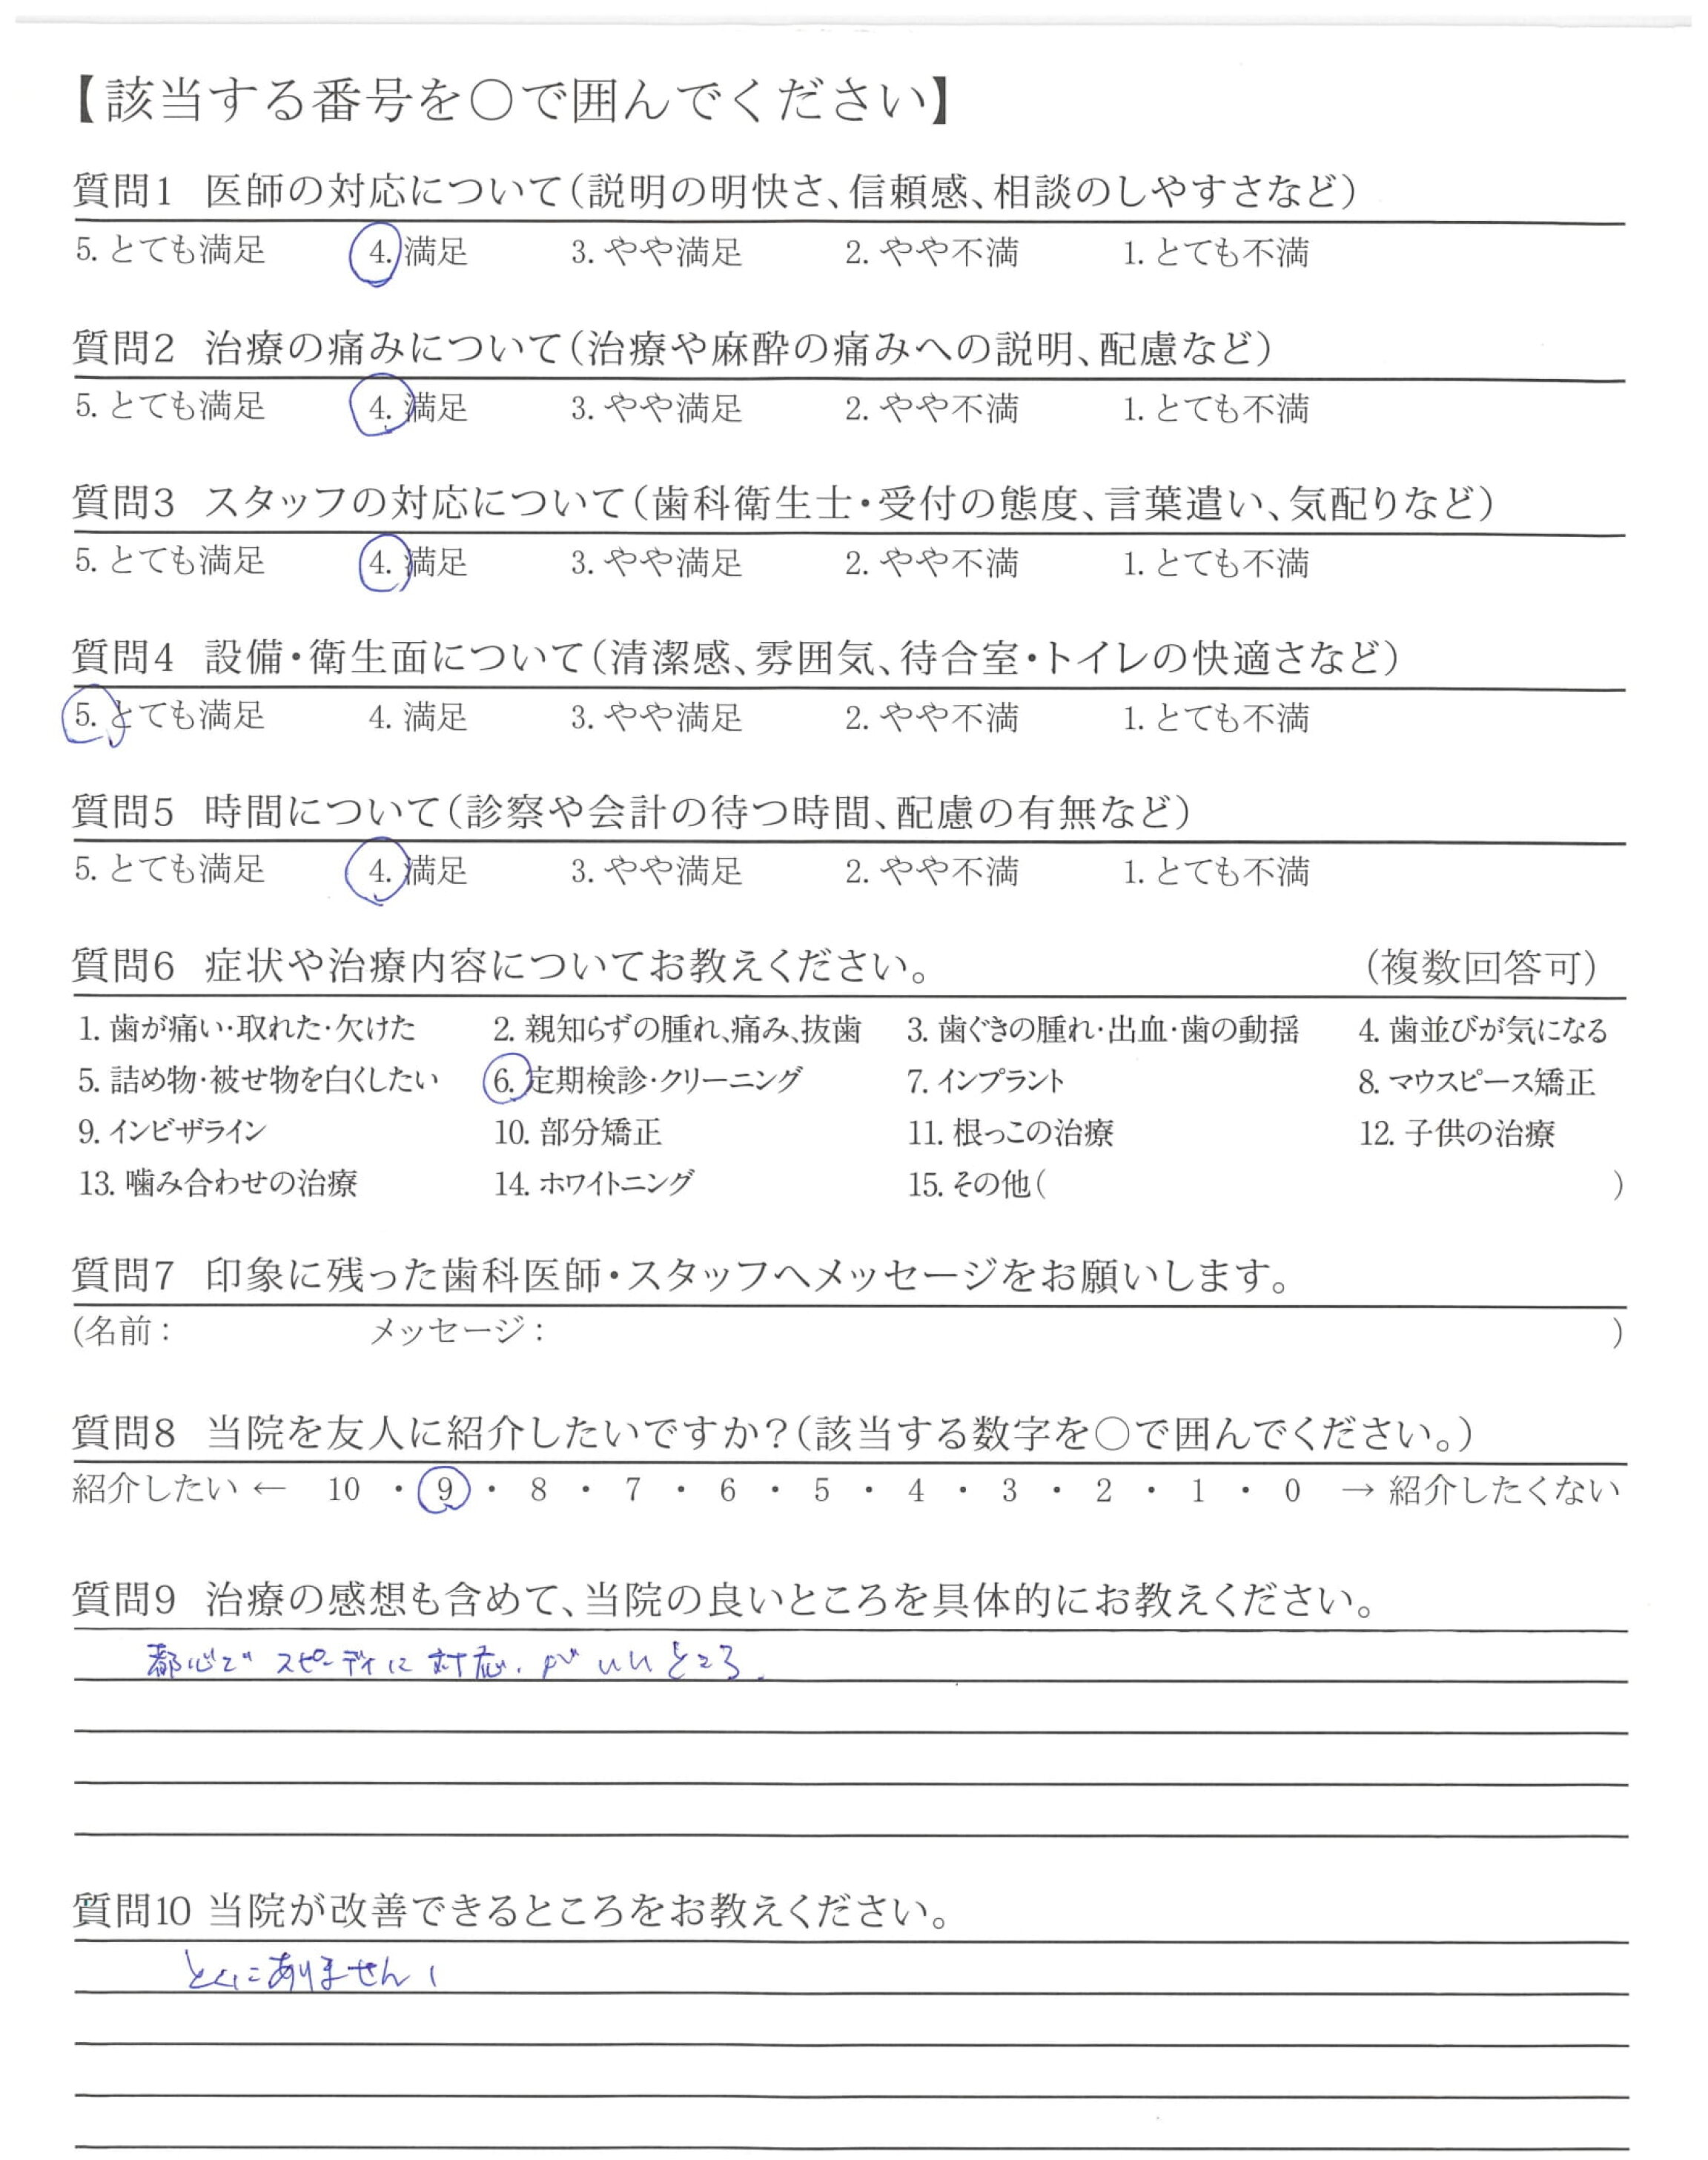 【該当する番号を○で囲んでください】
質問1 医師の対応について(説明の明快さ、信頼感、相談のしやすさなど)
5. とても満足 4. 満足 3. やや満足 2. やや不満 1. とても不満
質問2 治療の痛みについて(治療や麻酔の痛みへの説明、配慮など)
5. とても満足 4. 満足 3. やや満足 2. やや不満 1. とても不満
質問3 スタッフの対応について(歯科衛生士・受付の態度、言葉遣い、気配りなど)
5. とても満足 4. 満足 3. やや満足 2. やや不満 1. とても不満
質問4 設備・衛生面について(清潔感、雰囲気、待合室・トイレの快適さなど)
5. とても満足 4. 満足 3. やや満足 2. やや不満 1. とても不満
質問5 時間について(診察や会計の待つ時間、配慮の有無など)
5. とても満足 4. 満足 3. やや満足 2. やや不満 1. とても不満
質問6 症状や治療内容についてお教えください。 (複数回答可)
1. 歯が痛い・取れた・欠けた 2. 親知らずの腫れ、痛み、抜歯 3. 歯ぐきの腫れ・出血・歯の動揺 4. 歯並びが気になる
5. 詰め物・被せ物を白くしたい 6. 定期検診・クリーニング 7. インプラント 8. マウスピース矯正
9. インビザライン 10. 部分矯正 11. 根っこの治療 12. 子供の治療
13. 噛み合わせの治療 14. ホワイトニング 15. その他( )
質問7 印象に残った歯科医師・スタッフへメッセージをお願いします。
(名前: メッセージ: )
質問8 当院を友人に紹介したいですか?(該当する数字を○で囲んでください。)
紹介したい ← 10 ・ 9 ・ 8 ・ 7 ・ 6 ・ 5 ・ 4 ・ 3 ・ 2 ・ 1 ・ 0 → 紹介したくない
質問9 治療の感想も含めて、当院の良いところを具体的にお教えください。
都心でスピーディに対応、がいいところ.
質問10 当院が改善できるところをお教えください。
とくにありません!